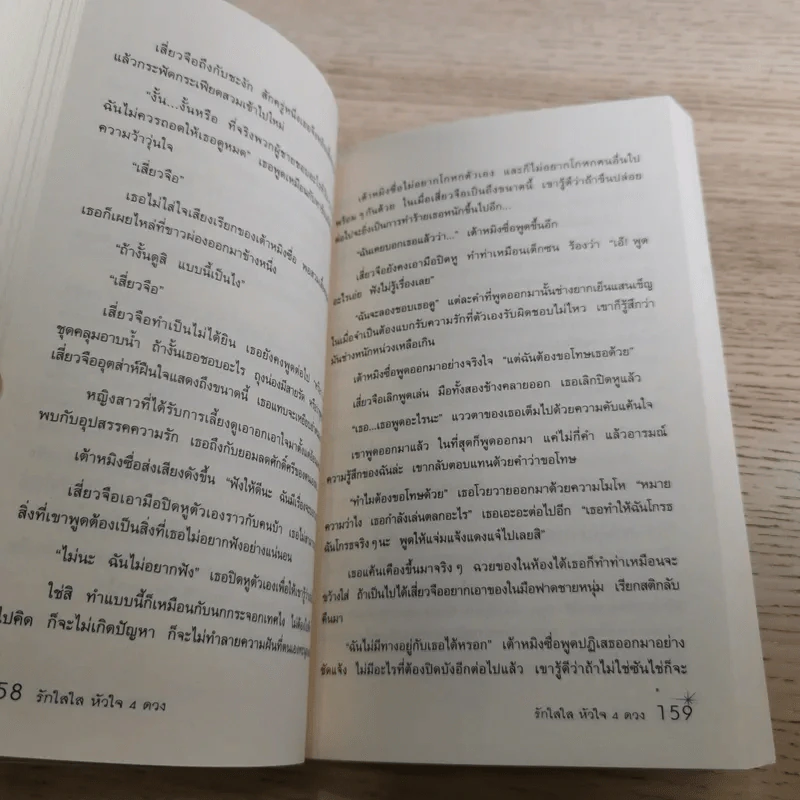 เสี่ยวจือถึงกับชะงัก สักครู่หนึ่งเธอจึง
แล้วกระฟัดกระเฟียดสวมเข้าไปใหม่
“งั้น...งั้นหรือ ที่จริงพวกผู้ชายชอบ
ฉันไม่ควรถอดให้เธอดูหมด” เธอพูดเหมือน
ความว้าวุ่นใจ
“เสี่ยวจือ”
เธอไม่ใส่ใจเสียงเรียกของเต้าหมิงซื่อ
เธอก็เผยไหล่ที่ขาวผ่องออกมาข้างหนึ่ง
“ถ้างั้นดูสิ แบบนี้เป็นไง”
“เสี่ยวจือ”
เสี่ยวจือทำเป็นไม่ได้ยิน เธอยังคงพูดต่อไป
ชุดคลุมอาบน้ำ ถ้างั้นเธอชอบอะไร ถุงน่องมีสายรัด
เสี่ยวจืออุตส่าห์ฝืนใจแสดงถึงขนาดนี้ เธอแทบจะ
หญิงสาวที่ได้รับการเลี้ยงดูเอาอกเอาใจมาตั้งแต่
พบกับอุปสรรคความรัก เธอถึงกับยอมลดศักดิ์ศรีของ
เต้าหมิงซื่อส่งเสียงดังขึ้น “ฟังให้ดีนะ ฉันมีเรื่อง
เสี่ยวจือเอามือปิดหูตัวเองราวกับคนบ้า เธอไม่
สิ่งที่เขาพูดต้องเป็นสิ่งที่เธอไม่อยากฟังอย่างแน่นอน
“ไม่นะ ฉันไม่อยากฟัง” เธอปิดหูตัวเองเพื่อให้เขารู้
ใช่สิ ทำแบบนี้ก็เหมือนกับนกกระจอกเทศไง ไม่
ไปคิด ก็จะไม่เกิดปัญหา ก็จะไม่ทำลายความฝันที่ตนเอง
58 รักใสใส หัวใจ 4 ดวง
เต้าหมิงซื่อไม่อยากโกหกตัวเอง และก็ไม่อยากโกหกคนอื่นไป
พร้อมๆ กันด้วย ในเมื่อเสี่ยวจือเป็นถึงขนาดนี้ เขารู้ดีว่าถ้าขืนปล่อย
ต่อไปจะยิ่งเป็นการทำร้ายเธอหนักขึ้นไปอีก...
“ฉันเคยบอกเธอแล้วว่า...” เต้าหมิงซื่อพูดขึ้นอีก
เสี่ยวจือยังคงเอามือปิดหู ทำท่าเหมือนเด็กซน ร้องว่า “เอ๊! พูด
อะไรเอ่ย ฟังไม่รู้เรื่องเลย”
“ฉันจะลองชอบเธอดู” แต่ละคำที่พูดออกมานั้นช่างยากเย็นแสนเข็ญ
ในเมื่อจำเป็นต้องแบกรับความรักที่ตัวเองรับผิดชอบไม่ไหว เขาก็รู้สึกว่า
มันช่างหนักหน่วงเหลือเกิน
เต้าหมิงซื่อพูดออกมาอย่างจริงใจ “แต่ฉันต้องขอโทษเธอด้วย”
เสี่ยวจือเลิกพูดเล่น มือทั้งสองข้างคลายออก เธอเลิกปิดหูแล้ว
“เธอ...เธอพูดอะไรนะ” แววตาของเธอเต็มไปด้วยความคับแค้นใจ
เขาพูดออกมาแล้ว ในที่สุดก็พูดออกมา แค่ไม่กี่คำ แล้วอารมณ์
ความรู้สึกของฉันล่ะ เขากลับตอบแทนด้วยคำว่าขอโทษ
“ทำไมต้องขอโทษด้วย” เธอโวยวายออกมาด้วยความโมโห “หมาย
ความว่าไง เธอกำลังเล่นตลกอะไร” เธอเอะอะต่อไปอีก “เธอทำให้ฉันโกรธ
ฉันโกรธจริงๆ นะ พูดให้แจ่มแจ้งแดงแจ๋ไปเลยสิ”
เธอแค้นเคืองขึ้นมาจริงๆ ฉวยของในห้องได้เธอก็ทำท่าเหมือนจะ
ขว้างใส่ ถ้าเป็นไปได้เสี่ยวจืออยากเอาของในมือฟาดชายหนุ่ม เรียกสติกลับ
คืนมา
“ฉันไม่มีทางอยู่กับเธอได้หรอก” เต้าหมิงซื่อพูดปฏิเสธออกมาอย่าง
ชัดแจ้ง ไม่มีอะไรที่ต้องปิดบังอีกต่อไปแล้ว เขารู้ดีว่าถ้าไม่ใช่ซันไช่ก็จะ
รักใสใส หัวใจ 4 ดวง 159